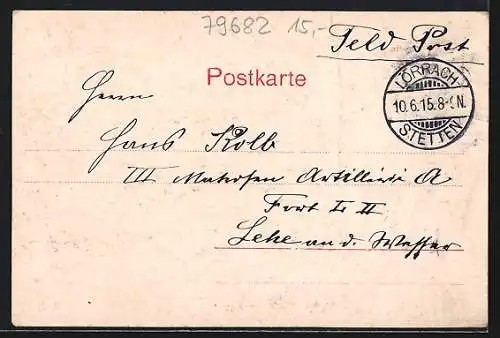 79682 15,-
Feld Post
Postkarte
LÖRRACH
10.6.15.8-9N.
STETTEN
Herrn
Hans Kolb
III Matrosen Artillerie A
Fort L II
Lehe an d. Wesser